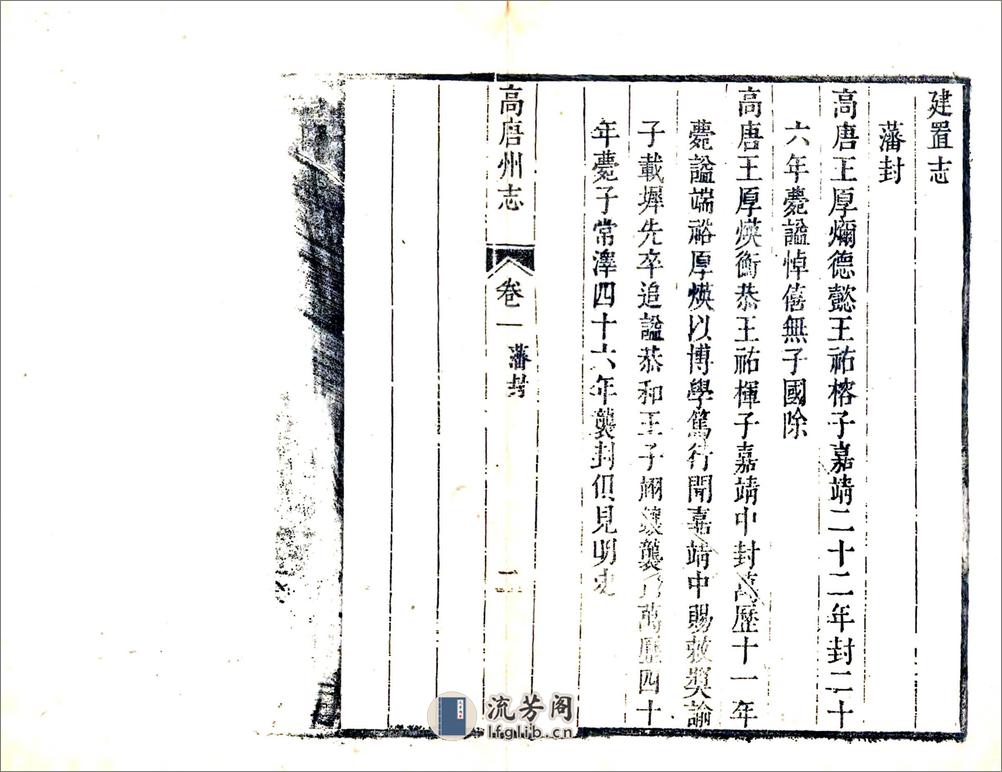 建置志
藩封
高唐王厚㸄德懿王祐榕子嘉靖二十二年封二十
六年薨諡悼僖無子國除
高唐王厚煐衡恭王祐楎子嘉靖中封萬歷十一年
薨諡端裕厚煐以博學篤行聞嘉靖中賜敕奬諭
子載墀先卒追諡恭和王子翊鑲襲萬歷四十
年薨子常澤四十六年襲封俱見明史
高唐州志
卷一
藩封
二
流芳阁
lfglib.cn